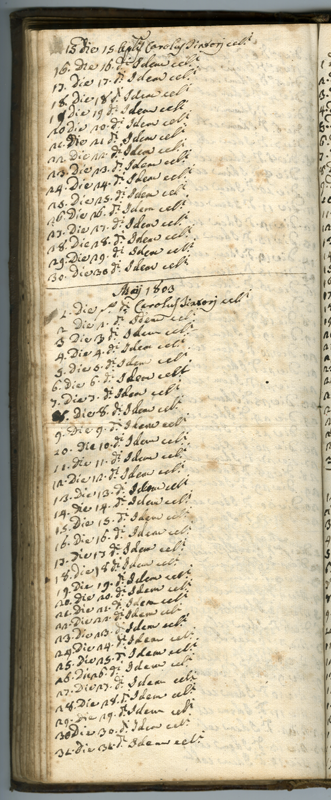 15 Die 15 Aplis Carolus Sintorij celt
16. Die 16. dt Idem celt
17. Die 17. dt Idem celt
18. Die 18 dt Idem celt
19 Die 19 dt Idem celt
20 Die 20. dt Idem celt
21. Die 21 dt Idem celt
22. Die 22 dt Idem celt
23. Die 23. dt Idem celt
24. Die 24. dt Idem celt
25. Die 25. dt Idem celt
26 Die 26. dt Idem celt
27. Die 27. dt Idem celt
28. Die 28. dt Idem celt
29. Die 29. dt Idem celt
30. Die 30 dt Idem celt
Maij 1803
1. Die 1 dt Carolus Sintorij celt
2. Die 2. dt Idem celt
3 Die 3 dt Idem celt
4. Die 4. dt Idem celt
5. Die 5. dt Idem celt
6. Die 6. dt Idem celt
7. Die 7. dt Idem celt
8. Die 8. dt Idem celt
9. Die 9. dt Idem celt
10. Die 10. dt Idem celt
11. Die 11. dt Idem celt
12. Die 12. dt Idem celt
13. Die 13. dt Idem celt
14. Die 14. dt Idem celt
15. Die 15. dt Idem celt
16. Die 16. dt Idem celt
17. Die 17 dt Idem celt
18. Die 18 dt Idem celt
19. Die 19. dt Idem celt
20. Die 20. dt Idem celt
21. Die 21. dt Idem celt
22. Die 22. dt Idem celt
23. Die 23. dt Idem celt
24. Die 24. dt Idem celt
25. Die 25. dt Idem celt
26. Die 26. dt Idem celt
27. Die 27. dt Idem celt
28. Die 28. dt Idem celt
29. Die 29. dt Idem celt
30 Die 30. dt Idem celt
31. Die 31. dt Idem celt